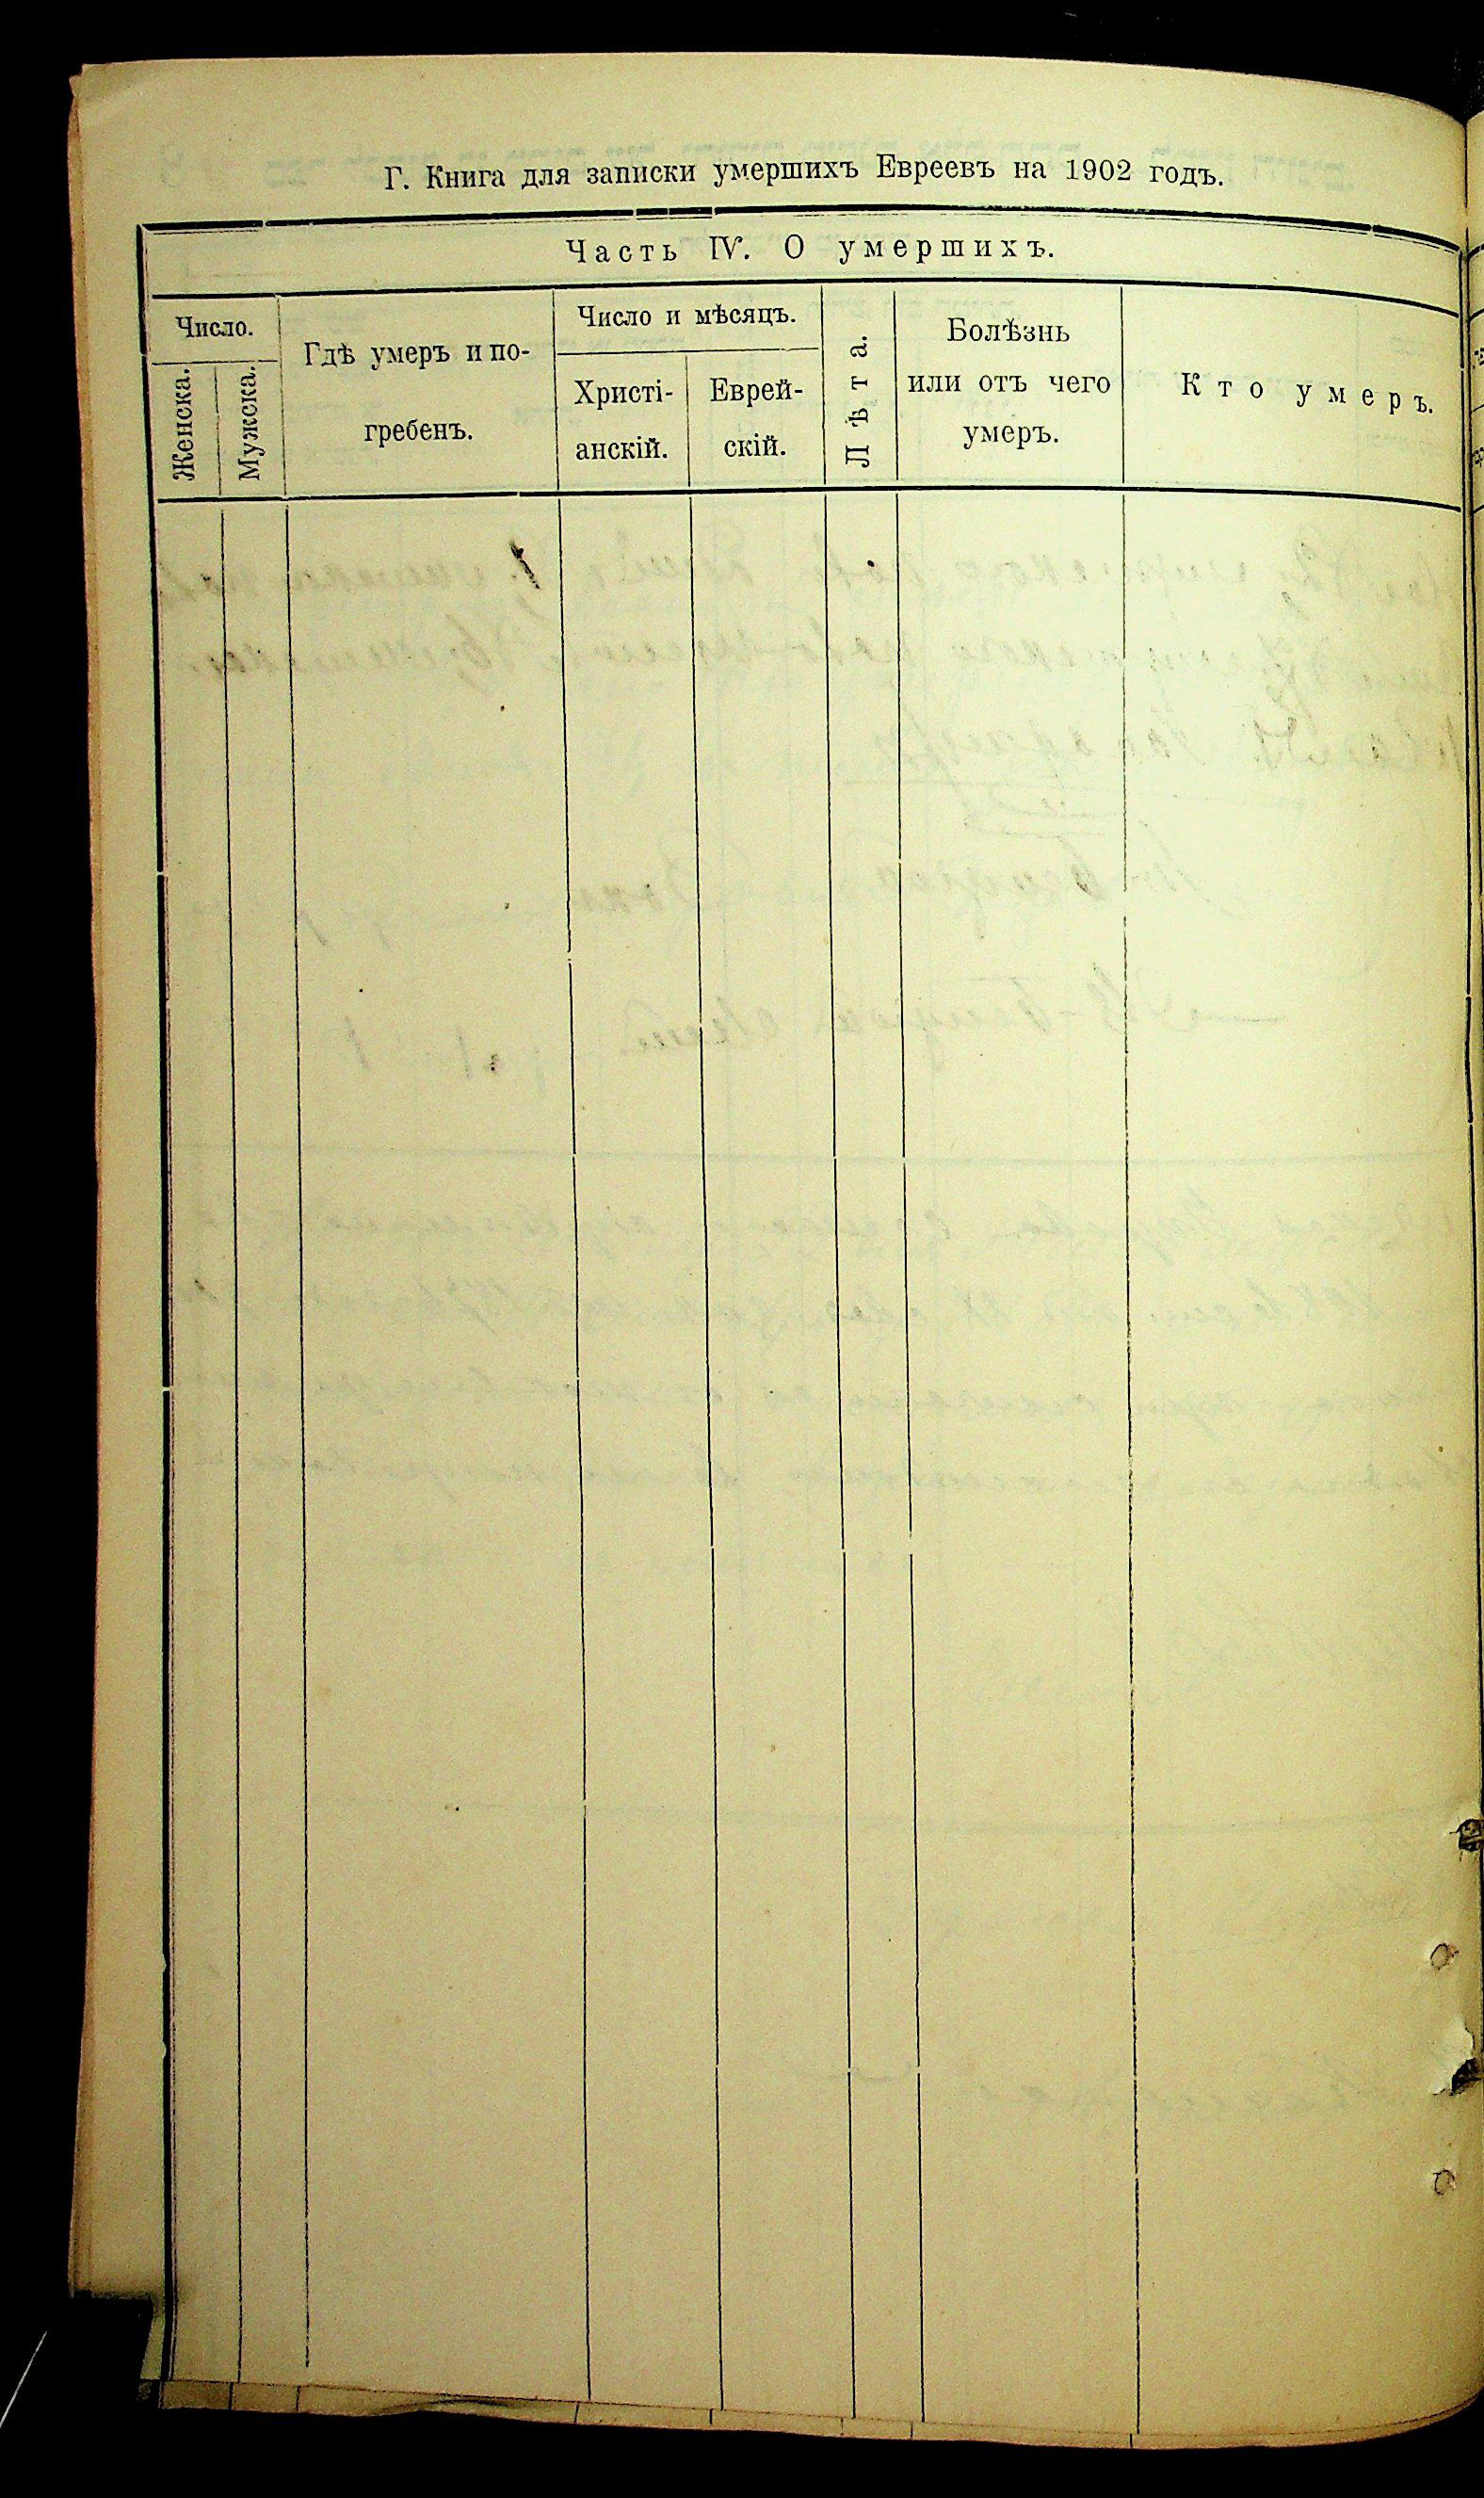 Г. Книга для записки умершихъ Евреевъ на 1902 годъ.
Часть IV. О умершихъ.
Число.
Женска.
Мужска.
Гдѣ умеръ и по-
гребенъ.
Число и мѣсяцъ.
Христі-
анскій.
Еврей-
скій.
Лѣта.
Болѣзнь
или отъ чего
умеръ.
Кто умеръ.